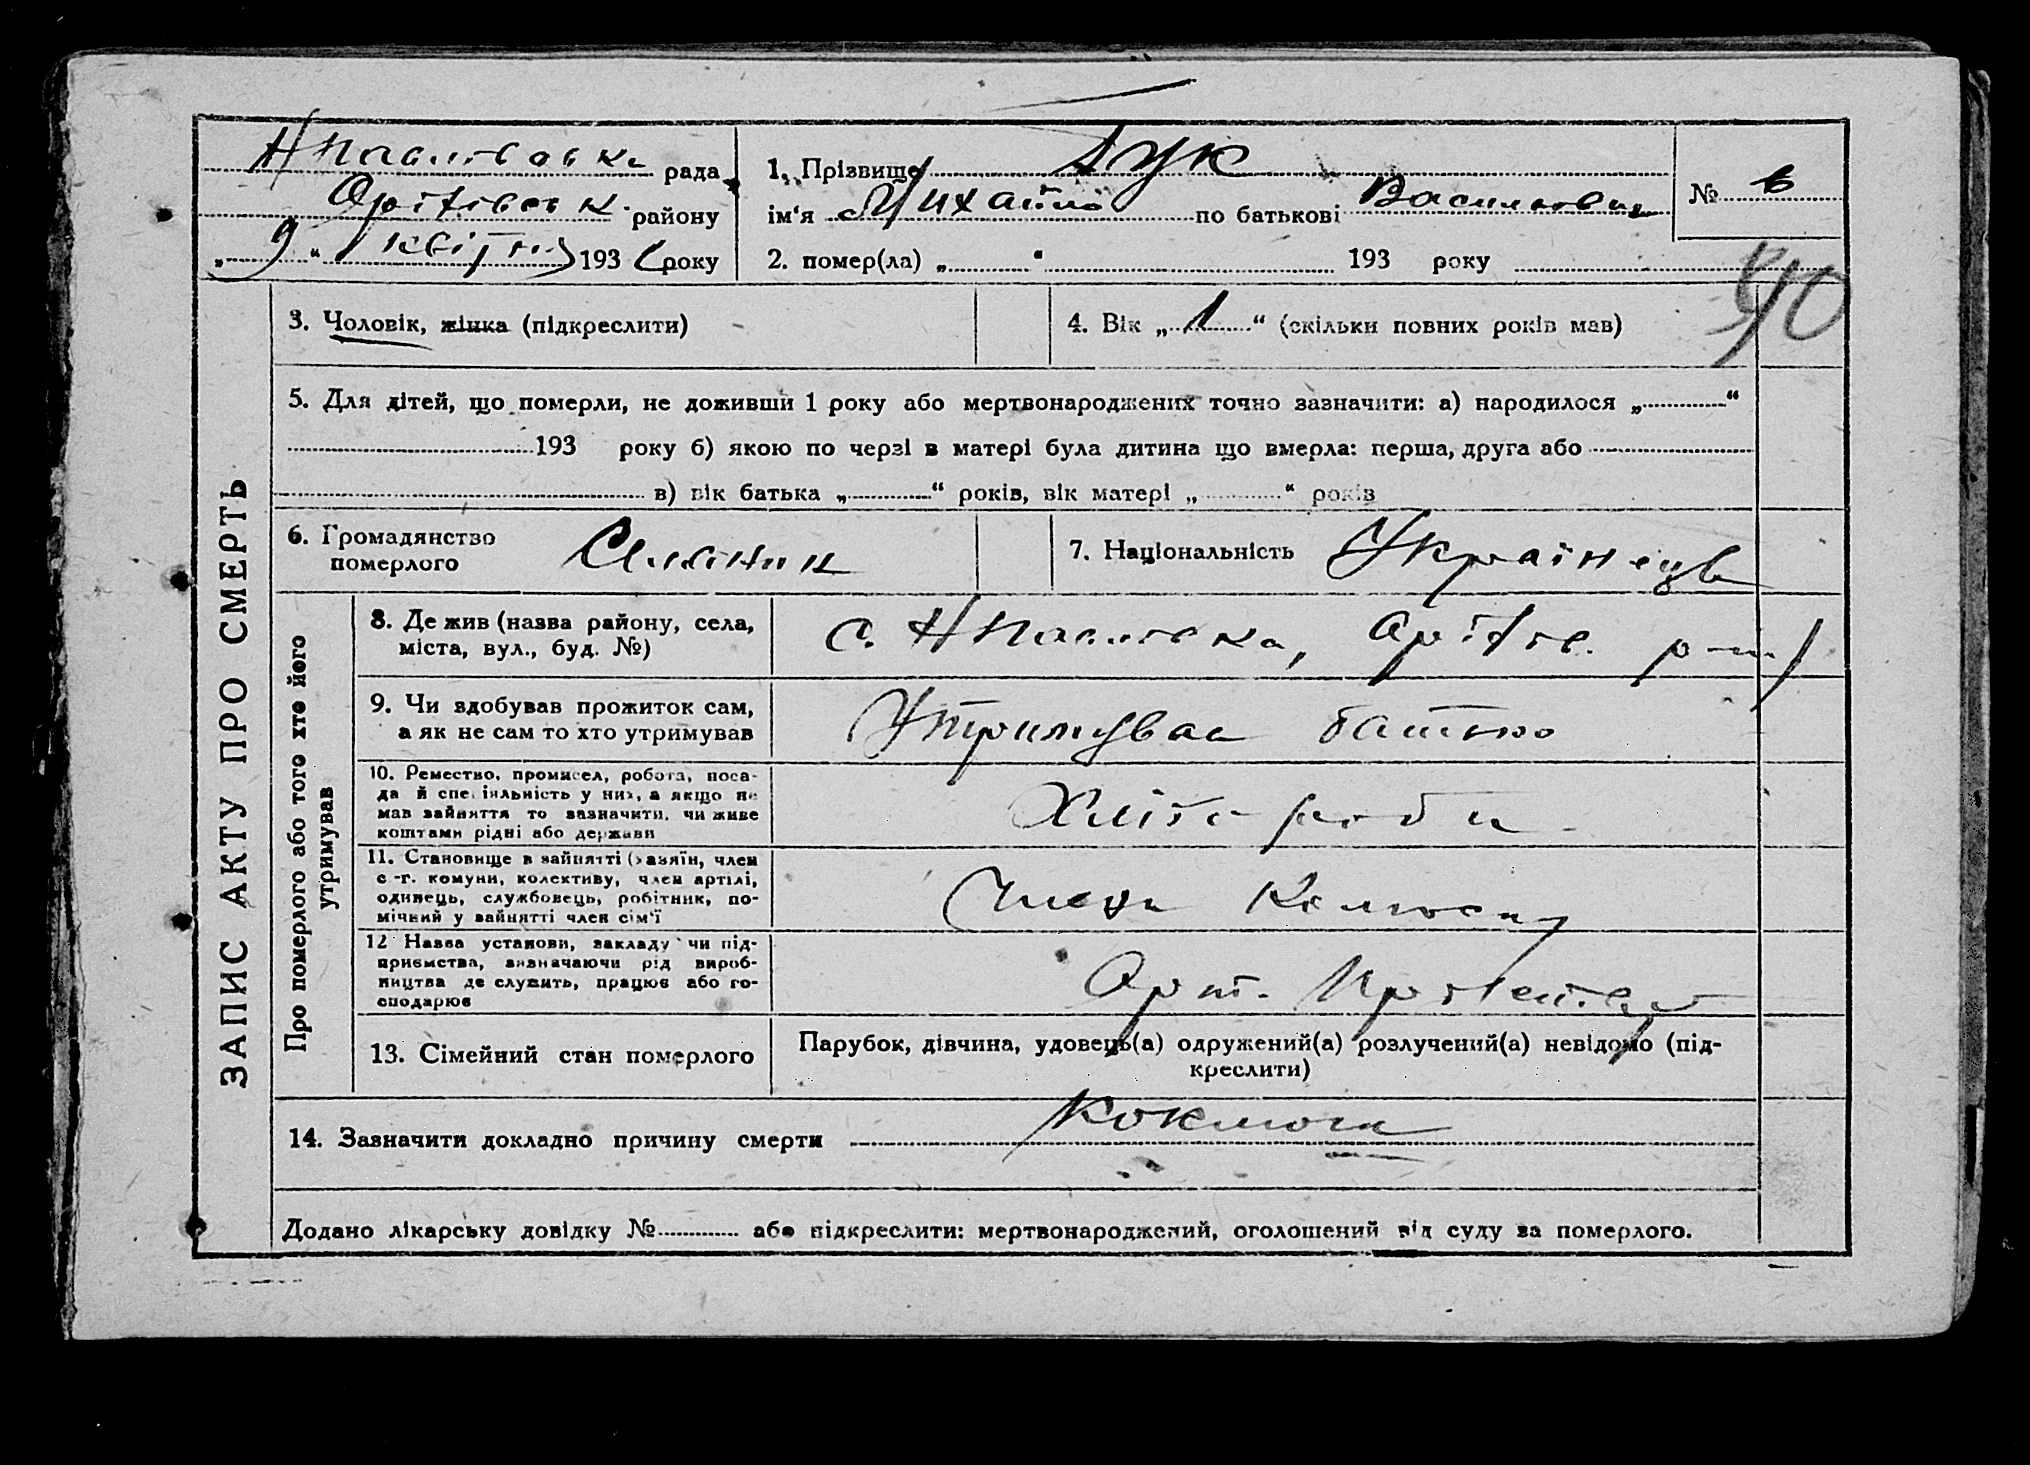 Н Павлівська рада
Орітівськ. району
„ 9 “ квітня 193 року
1. Прізвище Гук
ім‘я Михайло по батькові Васильович
№ 6
2. помер(ла) „ “ 193 року
90
3. Чоловік, жінка (підкреслити)
4. Вік „ 1 “ (скільки повних років мав)
5. Для дітей, що померли, не доживши 1 року або мертвонароджених точно зазначити: а) народилося „ “
193 року б) якою по черзі в матері була дитина що вмерла: перша, друга або
в) вік батька „ “ років, вік матері „ “ років
ЗАПИС АКТУ ПРО СМЕРТЬ
6. Громадянство
померлого
7. Національність Українець
Про померлого або того хто його
утримував
8. Де жив (назва району, села,
міста, вул., буд. №)
с. Н Павлівка, р-ну
9. Чи здобував прожиток сам,
а як не сам то хто утримував
Утримував батько
10. Ремество, промисел, робота, поса-
да й спеціяльність у них, а якщо не
мав зайняття то зазначити, чи живе
коштами рідні або держави
Хлібороби
11. Становище в зайнятті (хазяїн, член
с-г. комуни, колективу, член артілі,
одинець, службовець, робітник, по-
мічний у зайнятті член сім‘ї
Член Колгоспу
12 Назва установи, закладу чи під-
приємства, зазначаючи рід вироб-
ництва де служить, працює або го-
сподарює
Арт.
13. Сімейний стан померлого
Парубок, дівчина, удовець(а) одружений(а) розлучений(а) невідомо (під-
креслити)
14. Зазначити докладно причину смерти Коклюш
Додано лікарську довідку № або підкреслити: мертвонароджений, оголошений від суду за померлого.